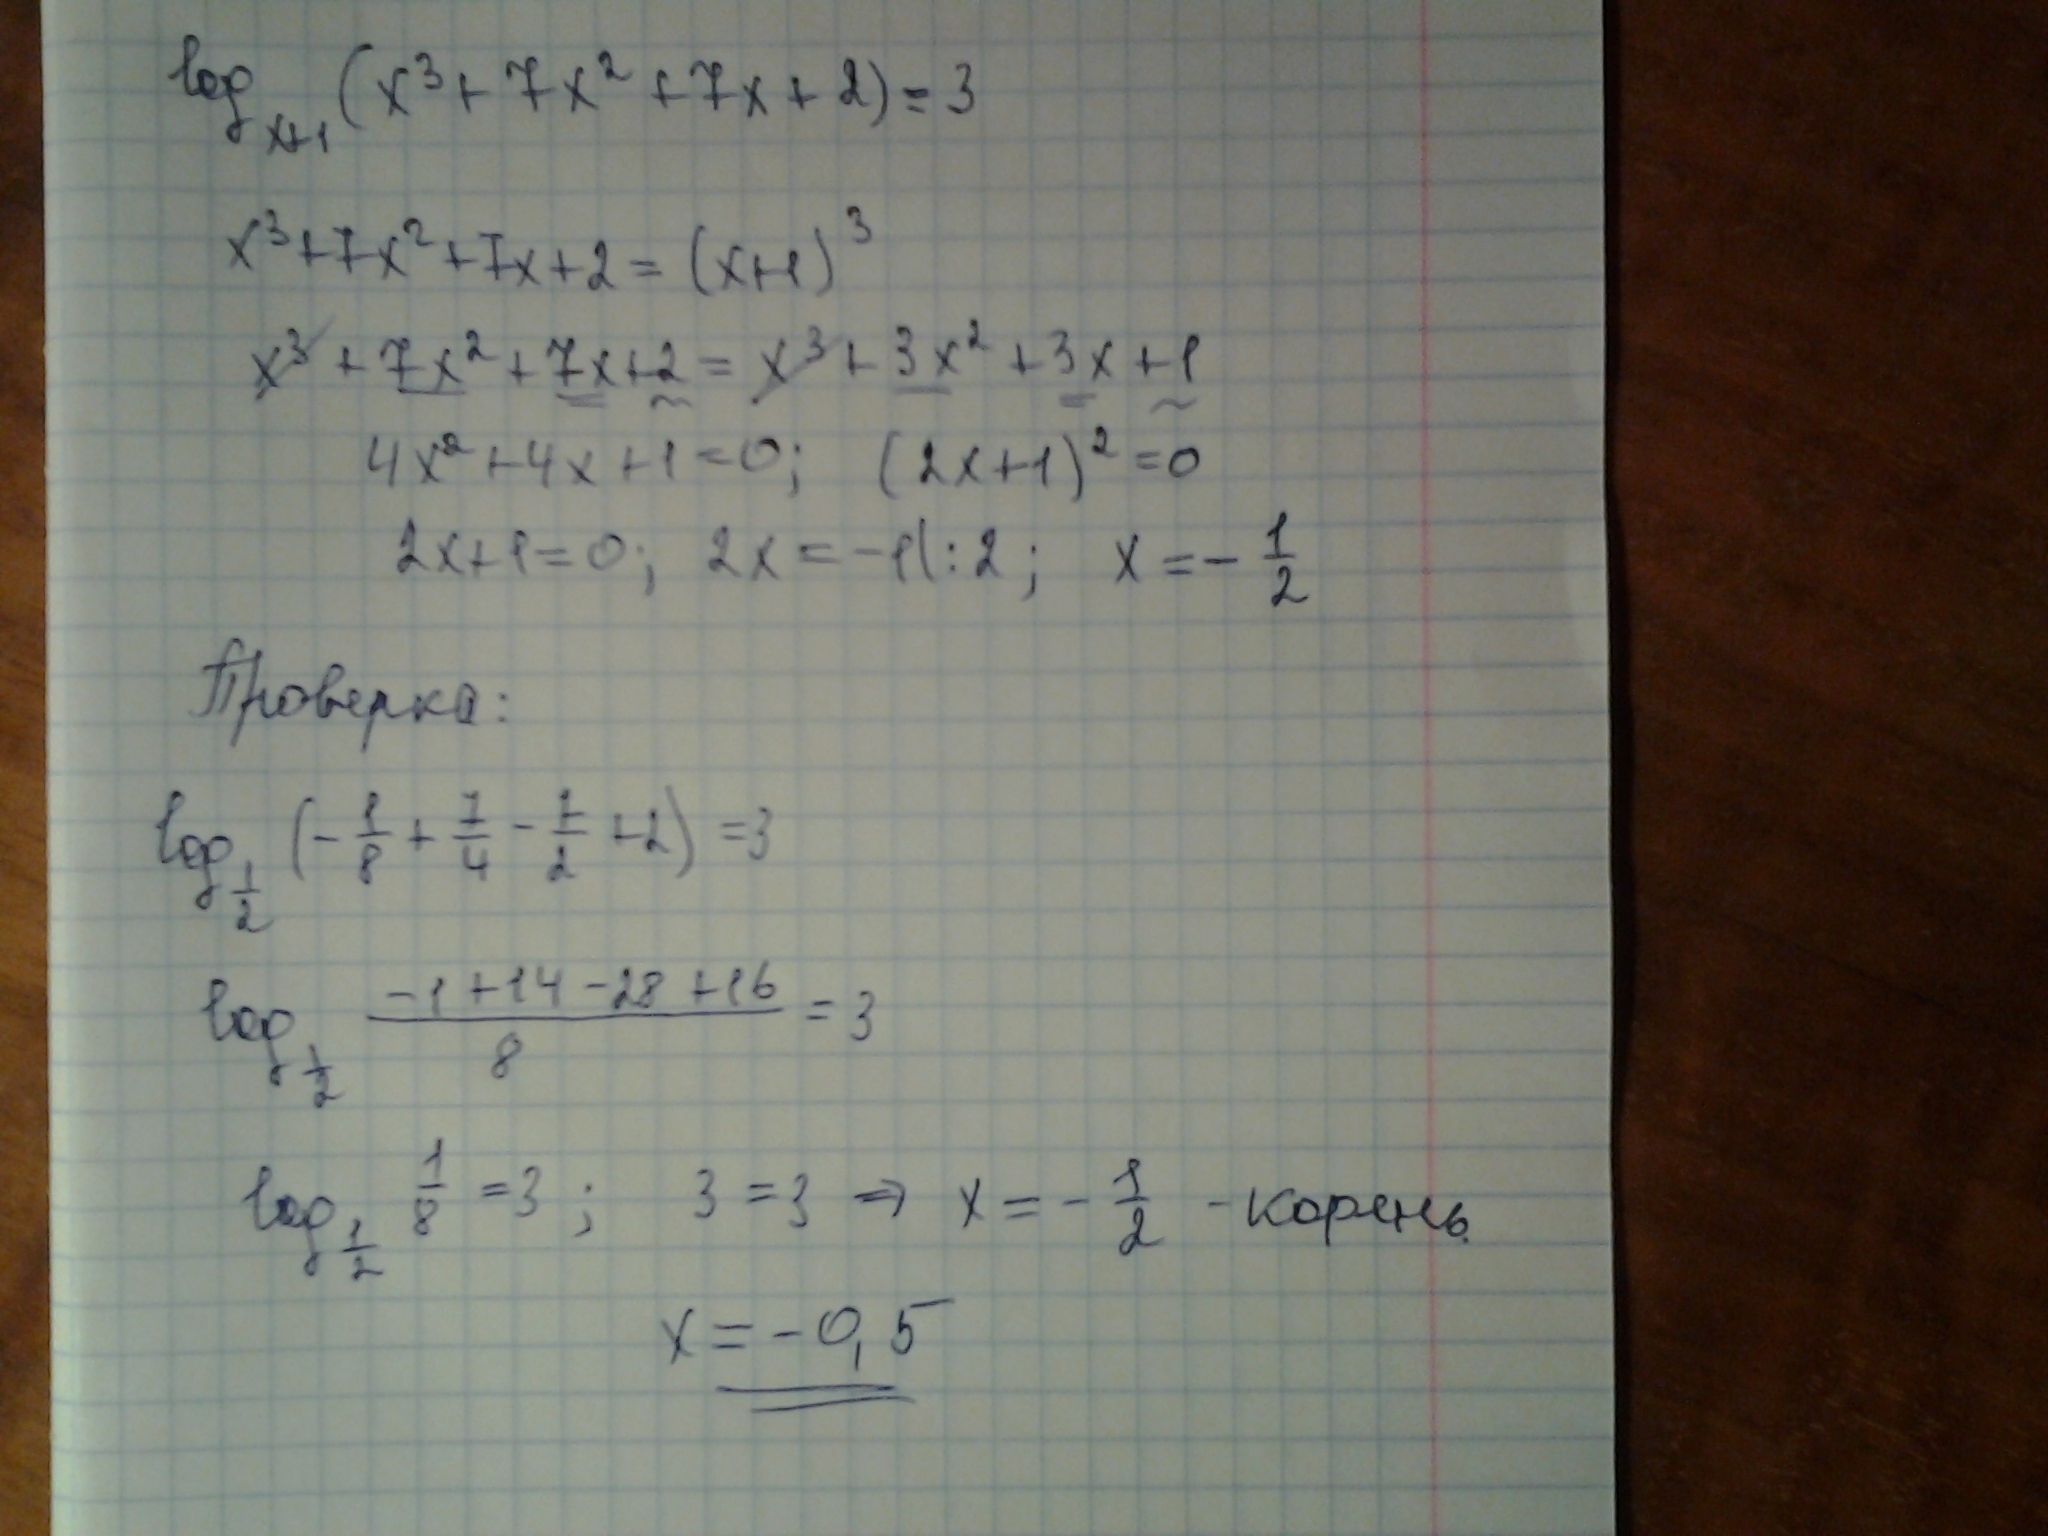 log_{x+1} (x³ + 7x² + 7x + 2) = 3
x³ + 7x² + 7x + 2 = (x+1)³
x³ + 7x² + 7x + 2 = x³ + 3x² + 3x + 1
4x² + 4x + 1 = 0; (2x+1)² = 0
2x+1 = 0; 2x = -1 |:2; x = -1/2
Проверка:
log_{1/2} (-1/8 + 7/4 - 7/2 + 2) = 3
log_{1/2} (-1 + 14 - 28 + 16)/8 = 3
log_{1/2} 1/8 = 3; 3 = 3 ⇒ x = -1/2 - корень.
x = -0,5